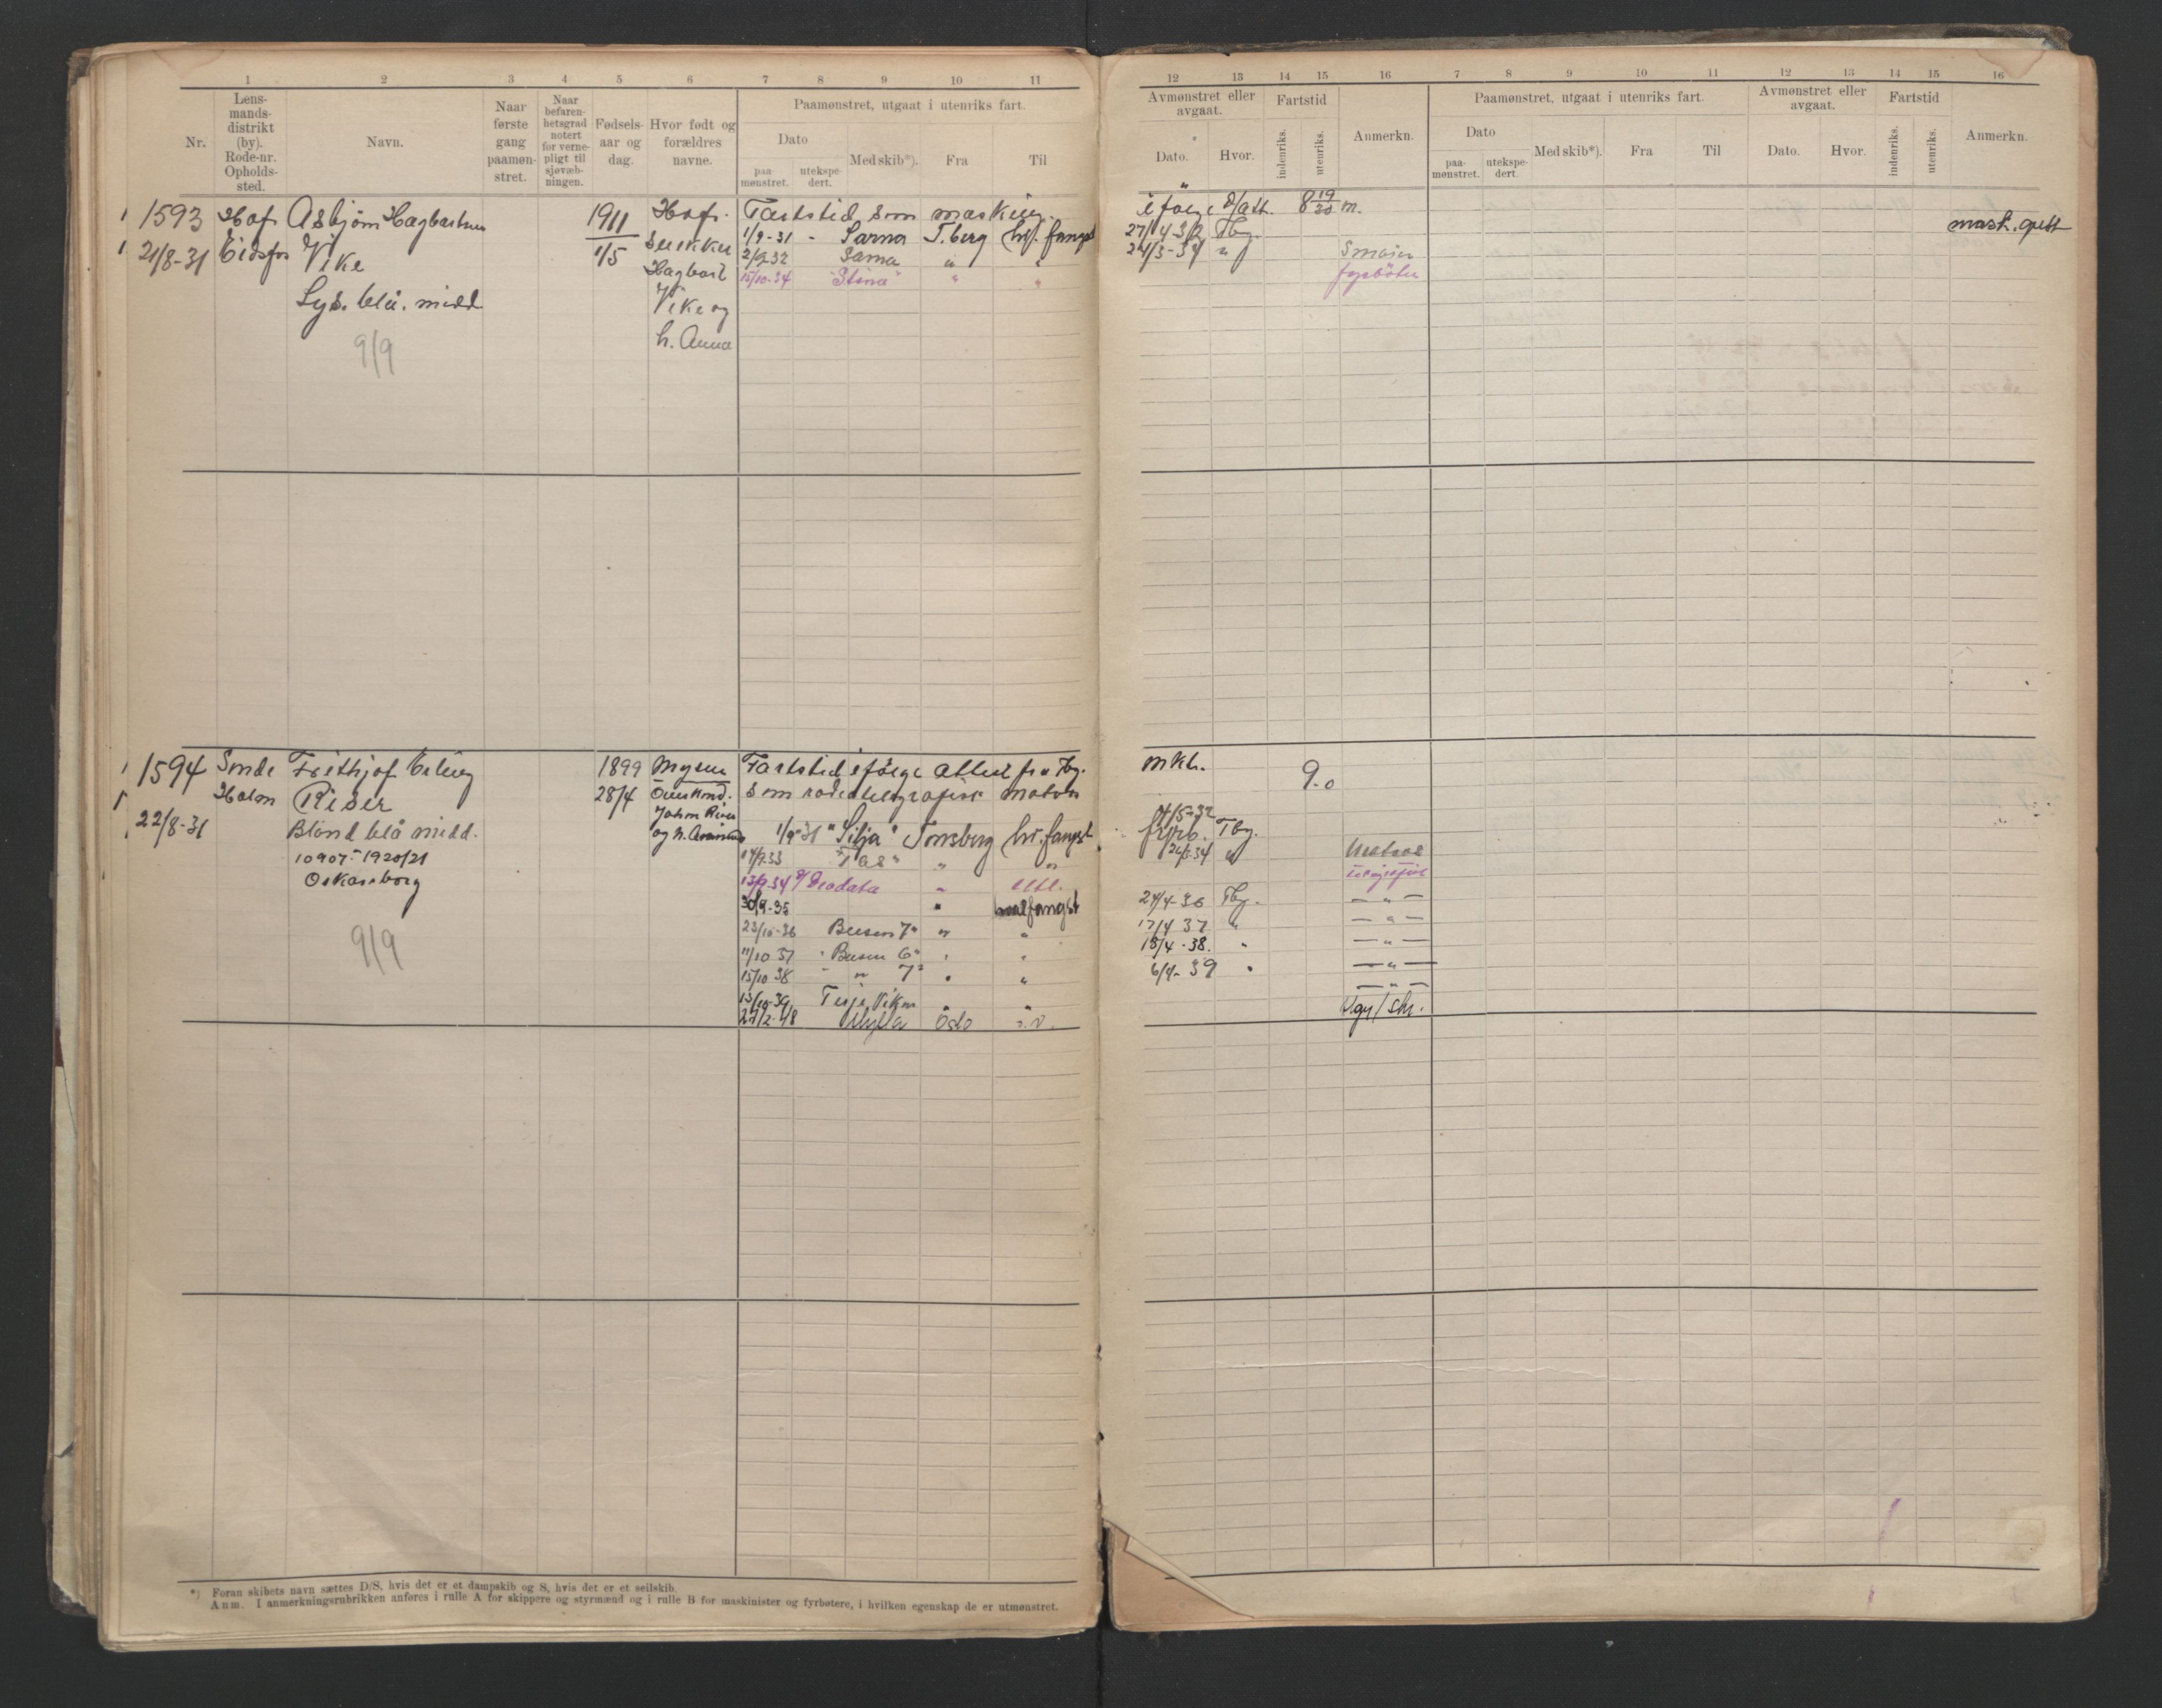 1 2 3 4 5 6 7 8 9 10 11
Nr.
Lens-
mands-
distrikt
(by).
Rode-nr.
Opholds-
sted.
Navn.
Naar
første
gang
paamøn-
stret.
Naar
befaren-
hetsgrad
notert
for verne-
pligt til
sjøvæb-
ningen.
Fødsels-
aar og
dag.
Hvor født og
forældres
navne.
Paamønstret, utgaat i utenriks fart.
Dato
paa-
mønstret.
utekspe-
dert.
Med skib*).
Fra
Til
1593 Hof Asbjørn Hagbartsen 1911 Hof.
21/8-31 Eidsfos Vike 1/5
Hagbart
Lys. blå. midd.
Vike og
h. Anna
9/9
Fartstid som
1/9-31 - Sarna T.berg hv. fangst
2/9-32 Sarna " "
15/10-34 "Stina" " "
1594 Sande Frithjof Erling 1899 Mysen Fartstid ifølge attest fra Tbg.
Holm Riser 28/4 som radiotelegrafist
22/8-31 Blond blå midd.
10907-1920/21
Oskarsborg
9/9
1/9-31 "Silja" Tønsberg hv. fangst
" "
13/9-34 "
30/9-35 " hvalfangst
23/10-36 Busen 7" " "
11/10 37 "Busen 6" " "
15/10 38 " " 7" " "
13/10-39 Terje Viken " "
27/2-48 Oslo
*) Foran skibets navn sættes D/S, hvis det er et dampskib og S, hvis det er et seilskib.
Anm. I anmerkningsrubrikken anføres i rulle A for skippere og styrmænd og i rulle B for maskinister og fyrbøtere, i hvilken egenskap de er utmønstret.
12 13 14 15 16 7 8 9 10 11 12 13 14 15 16
Avmønstret eller
avgaat.
Dato.
Hvor.
Fartstid
indenriks.
utenriks.
Anmerkn.
Paamønstret, utgaat i utenriks fart.
Dato
paa-
mønstret.
utekspe-
dert.
Med skib*).
Fra
Til
Avmønstret eller
avgaat.
Dato.
Hvor.
Fartstid
indenriks.
utenriks.
Anmerkn.
ifølge att. 8 19/30 m.
27/4 32 Tbg.
24/3-34 " Smører
fyrbøter
9.0
4/5-32
Tbg.
26/3-34 " Matros
telegrafist
24/4-36 Tbg. — " —
17/4 37 " — " —
18/4-38. " — " —
6/4-39 " — " —
— " —